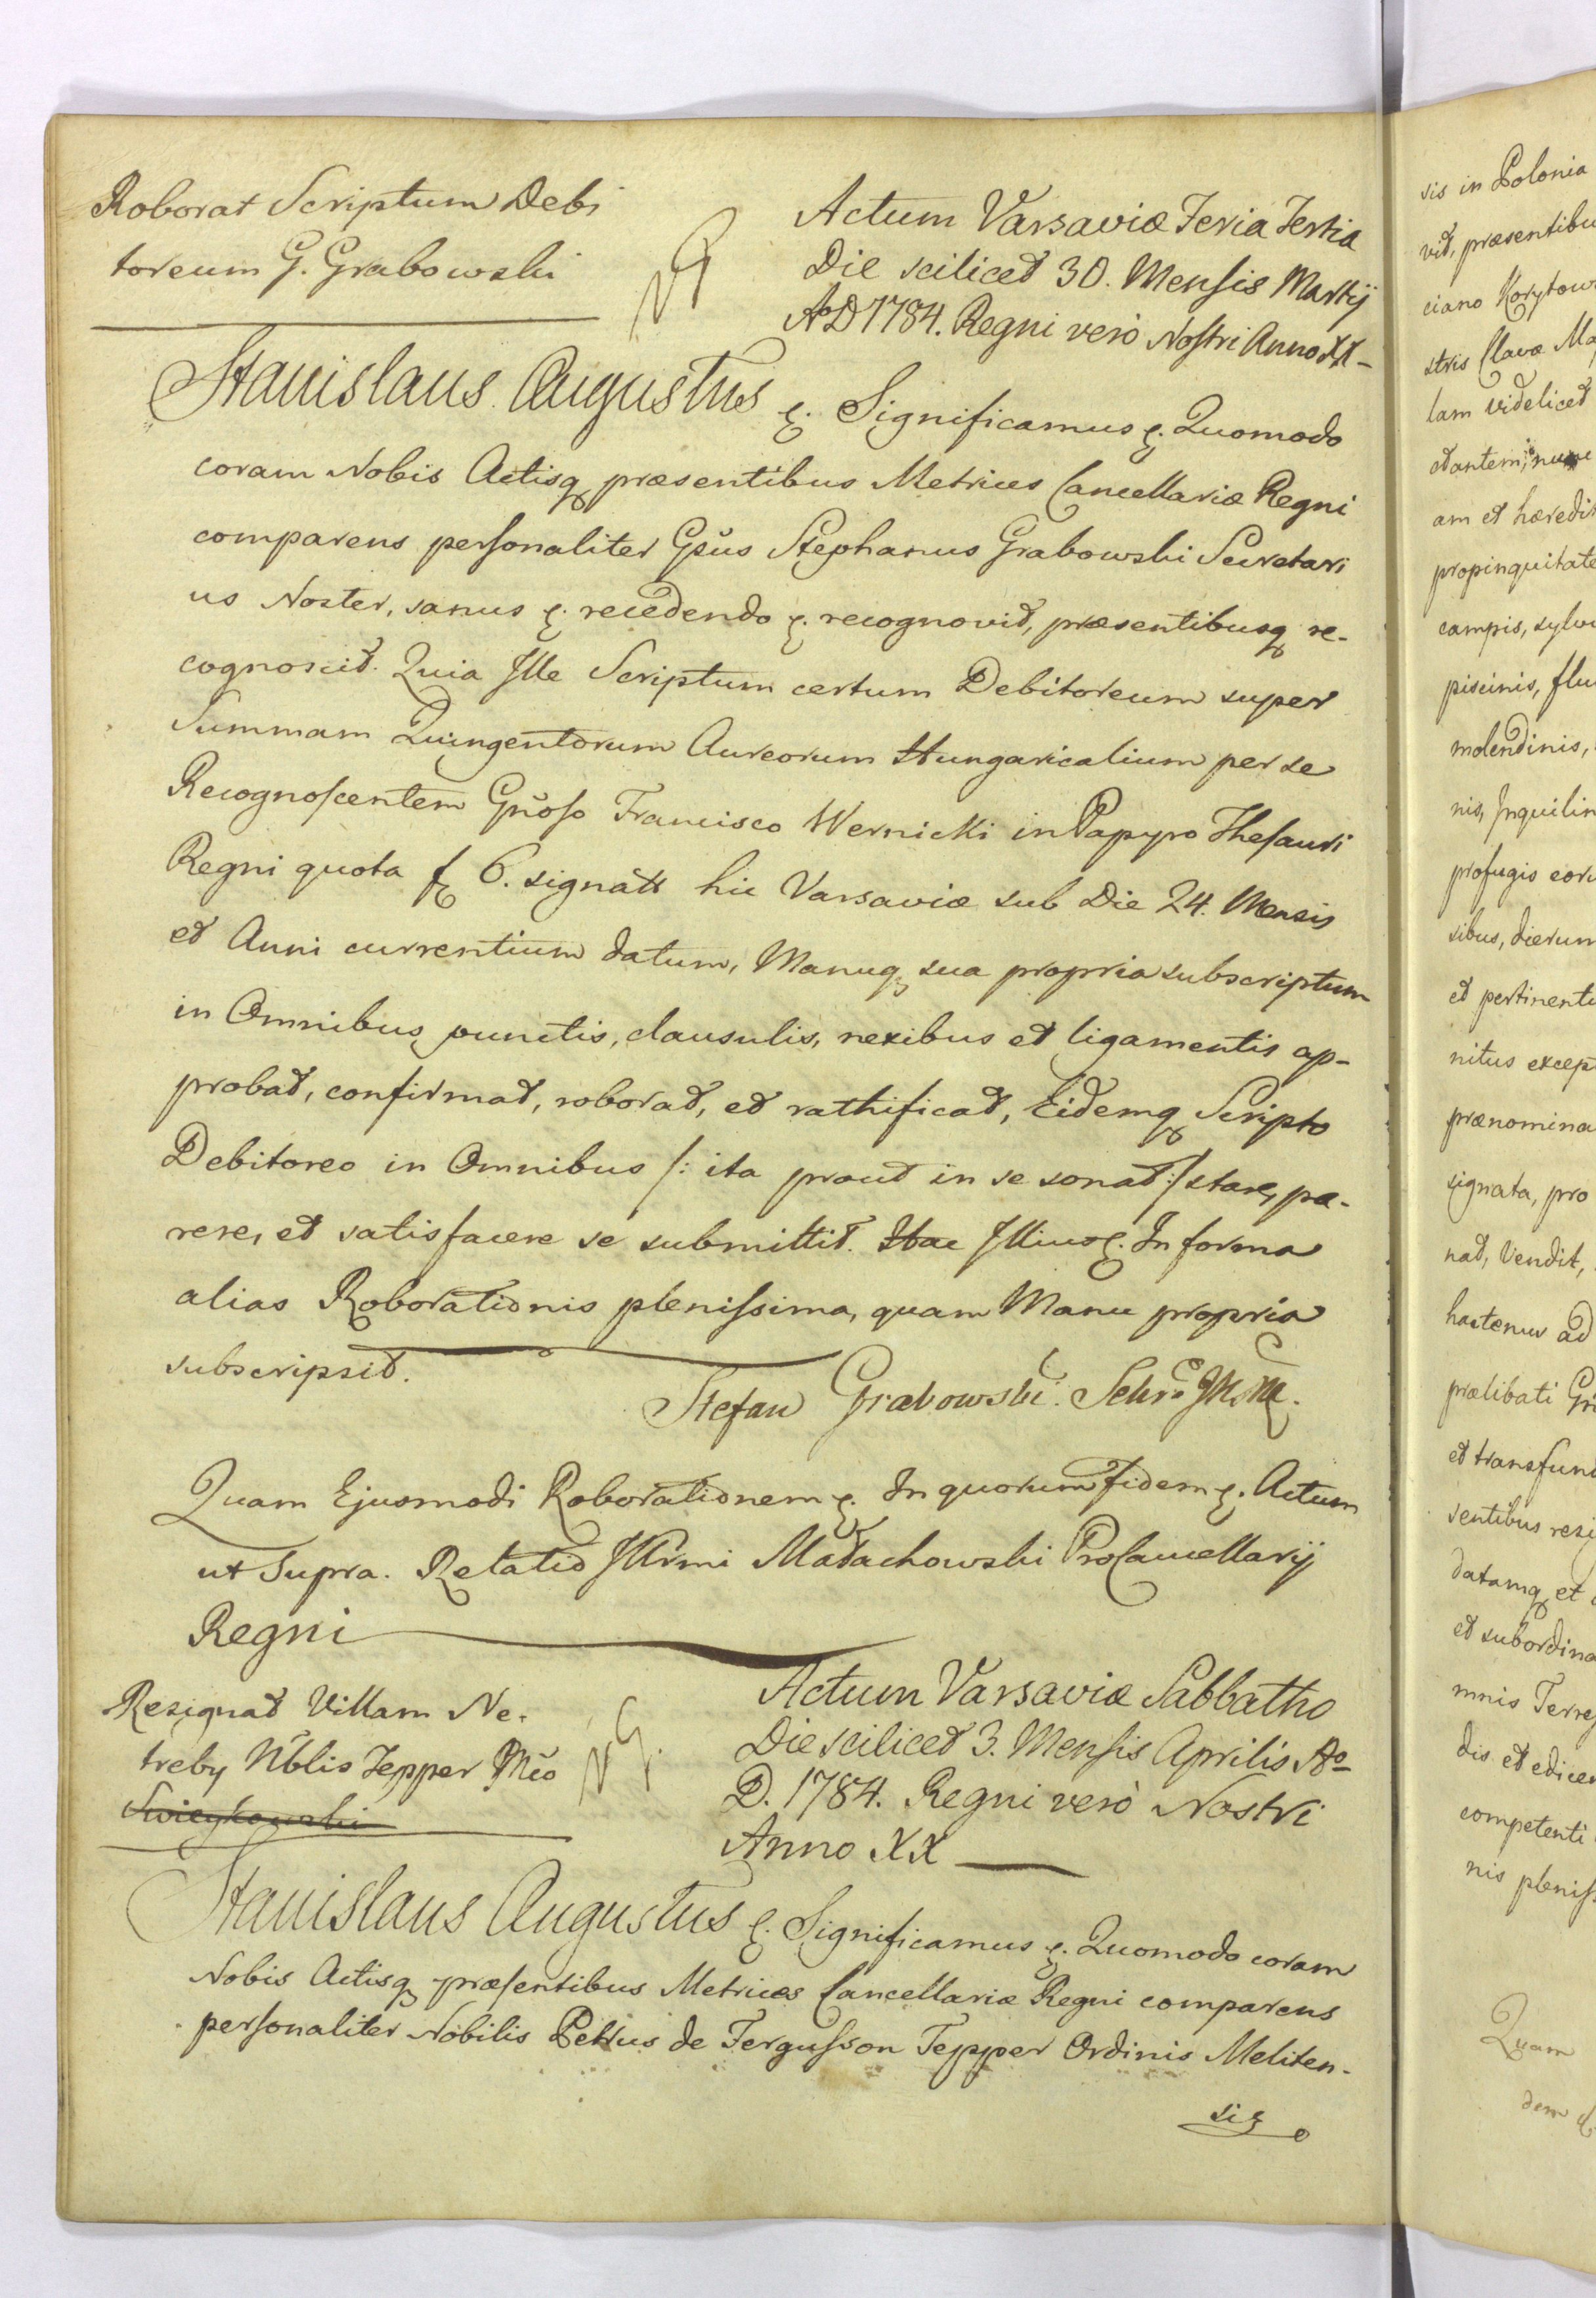 Roborat Scriptum Debi
toreum G. Grabowski
Actum Varsaviæ Feria Tertia
Die scilicet 30. Mensis Martij
AoD 1784. Regni verò Nostri Anno XX-
Stanislaus Augustus &. Significamus &. Quomodo
coram Nobis Actisq præsentibus Metrices Cancellariæ Regni
comparens personaliter Gsus Stephanus Grabowski Secretari
us Noster, sanus &. recedendo &. recognovit, præsentibusq re-
cognoscit. Quia Ille Scriptum certum Debitoreum super
Summam Quingentorum Aureorum Hungaricalium per se
Recognoscentem Gnoso Francisco Wernicki in Papyro Thesauri
Regni quota f 6. signatt hic Varsaviæ sub Die 24. Mensis
et Anni currentium datum, Manuq sua propria subscriptum
in Omnibus punctis, clausulis, nexibus et ligamentis ap-
probat, confirmat, roborat, et rathificat, Eidemq Scripto
Debitoreo in Omnibus /: ita prout in se sonat :/ stare, pa-
rere, et satisfacere se submittit. Hac Illius &. In forma
alias Roborationis plenissima, quam Manu propria
subscripsit.
Stefan Grabowski. Sekr. JKM.
Quam Ejusmodi Roborationem &. In quorum fidem &. Actum
ut Supra. Relatio Illrmi Małachowski ProCancellarij
Regni
Resignat Villam Ne-
treby Nblis Tepper Mco
Swieykowski
Actum Varsaviæ Sabbatho
Die scilicet 3. Mensis Aprilis Ao
D. 1784. Regni verò Nostri
Anno XX
Stanislaus Augustus &. Significamus &. Quomodo coram
Nobis Actisq præsentibus Metrices Cancellariæ Regni comparens
personaliter Nobilis Petrus de Fergusson Tepper Ordinis Meliten-
sis
sis in Polonia
vit, præsentibu
ciano Korytow
stris Clavæ Ma
lam videlicet
am et hæredit
propinquitate
campis, sylvi
piscinis, flu
molendinis,
nis, Inquilin
profugis eoru
sibus, dierum
et pertinenti
nitus excep
prænomina
signata, pro
nat, Vendit,
hactenus ad
prælibati Gn
et transfund
sentibus resi
datamq et
et subordina
mnis Terre
dis et edicen
competenti
nis pleniss
Quam
dem &.